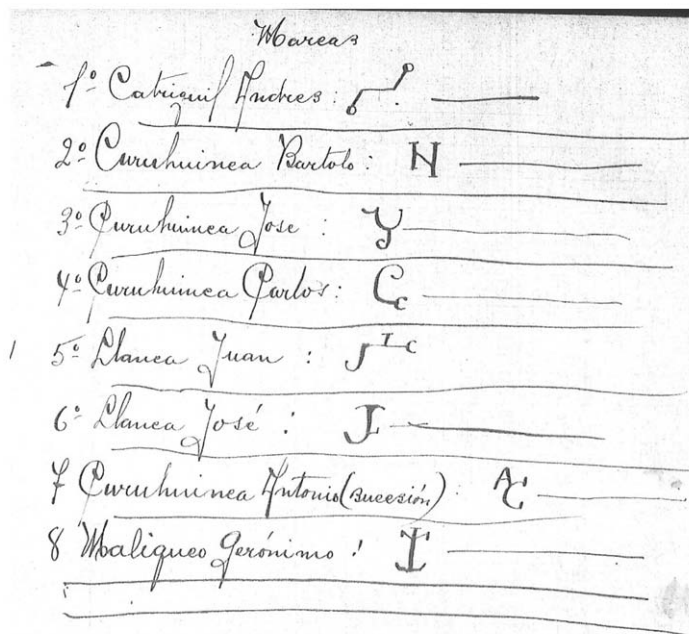 Marcas
1º Catriquil Andres:
2º Curuhuinca Bartolo: N
3º Curuhuinca Jose :
4º Curuhuinca Carlos: Cc
5º Llanca Juan : J L C
6º Llanca José : JL
7 Curuhuinca Antonio (sucesión): AC
8 Maliqueo Gerónimo :